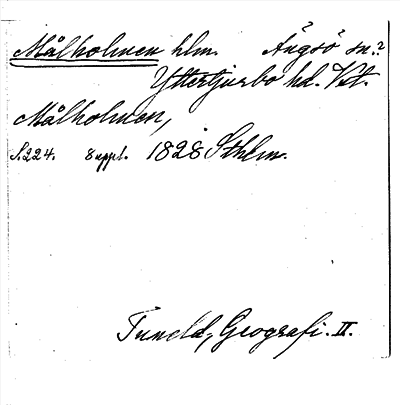 Målholmen hlm. Ängsö sn.?
Yttertjurbo hd. Vst.
Målholmen,
S. 224. 8 uppl. 1828 Sthlm.
Tuneld, Geografi. II.